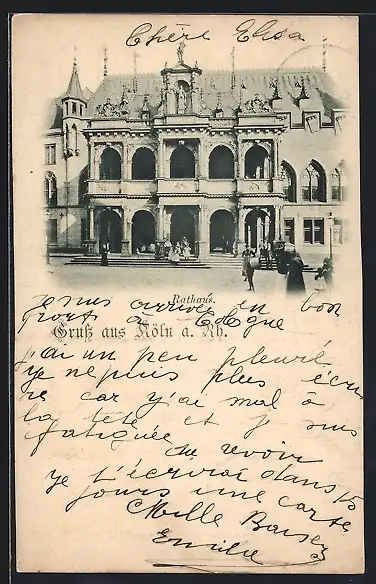 Chère Elisa
Rathaus.
Je suis arrivée en bon
à Cologne
Gruß aus Köln a. Rh.
j'ai un peu pleuré
je ne puis plus écri
re car j'ai mal à
la tête et je suis
fatiguée
Au revoir
je t'écrirai dans 15
jours une carte
Mille Baiser
Emilie